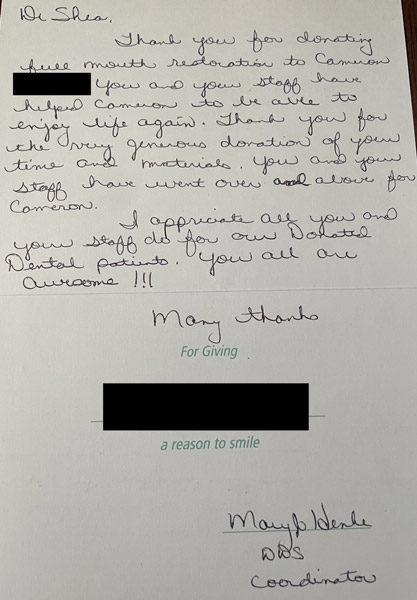 Dr Shea,
Thank you for donating
full mouth restoration to Cameron
You and your staff have
helped Cameron to be able to
enjoy life again. Thank you for
the very generous donation of your
time and materials. You and your
staff have went over and above for
Cameron.
I appriciate all you and
your staff do for our Donated
Dental patients. You all are
awesome !!!
Many thanks
For Giving
a reason to smile
Mary
DDS
Coordinator